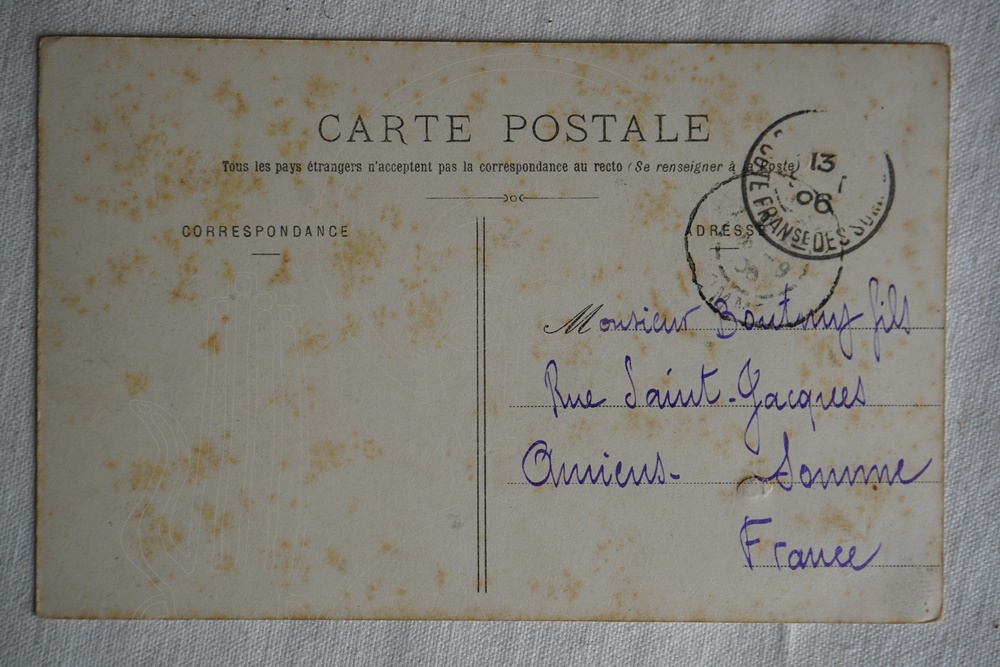 CARTE POSTALE
Tous les pays étrangers n'acceptent pas la correspondance au recto (Se renseigner à la Poste)
CORRESPONDANCE
ADRESSE
13
06
COTE FRANSE DES SOM
Monsieur Boutmy fils
Rue Saint-Jacques
Amiens- Somme
France